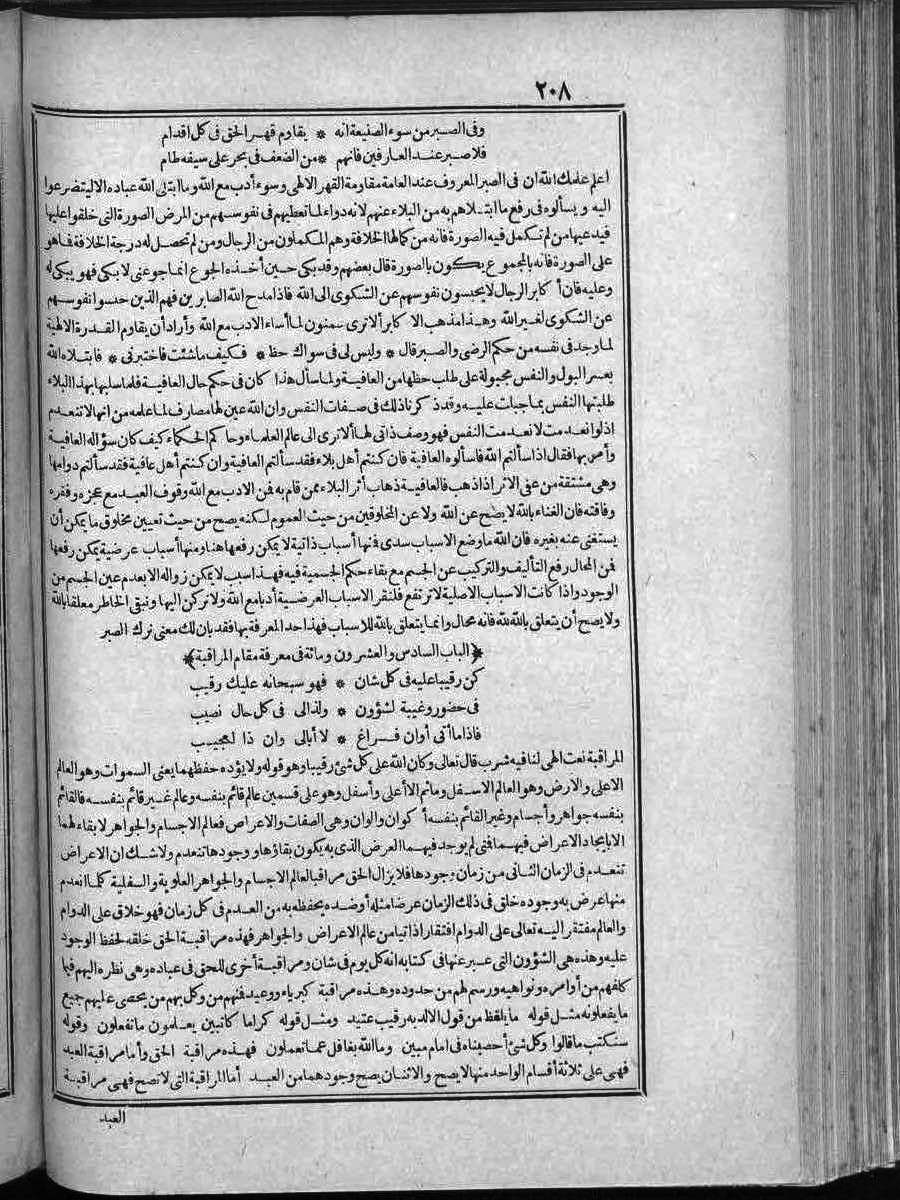 ٢٠٨
وفى الصبر من سوء الصنيعة انه * يقاوم قهر الحق فى كل اقدام
فلا صبر عند العارفين فانهم * من الضعف فى بحر على سيفه طام
اعلم علمك الله ان فى الصبر المعروف عند العامة مقاومة القهر الالهى وسوء أدب مع الله وما ابتلى الله عباده الا ليتضرعوا
اليه ويسألوه فى رفع ما ابتلاهم به من البلاء عنهم لانه دواء لما تعطيهم فى نفوسهم من المرض الصورة التى خلقوا عليها
فيدعيها من لم تكمل فيه الصورة فانه من كمالها الخلافة وهم المكملون من الرجال ومن لم تحصل له درجة الخلافة فما هو
على الصورة فانه بالمجموع يكون بالصورة قال بعضهم وقد بكى حين أخذه الجوع انما جوعنى لابكى فهو يبكى له
وعليه فان أكابر الرجال لا يحبسون نفوسهم عن الشكوى الى الله فاذا مدح الله الصابرين فهم الذين حبسوا نفوسهم
عن الشكوى لغير الله وهذا مذهب الاكابر ألا ترى سمنون لما أساء الادب مع الله وأراد أن يقاوم القدرة الالهية
لما وجد فى نفسه من حكم الرضى والصبر قال * وليس لى فى سواك حظ * فكيف ما شئت فاختبرنى * فابتلاه الله
بعسر البول والنفس مجبولة على طلب حظها من العافية ولما سأل هذا كان فى حكم حال العافية فلما سلبها بهذا البلاء
طلبتها النفس بما جبلت عليه وقد ذكرنا ذلك فى صفات النفس وان الله عين لها مصارف لما علمه من انها لا تنعدم
اذ لو انعدمت لانعدمت النفس فهو وصف ذاتى لها ألا ترى الى عالم العلماء وحاكم الحكماء كيف كان سؤاله العافية
وأمر بها فقال اذا سألتم الله فاسألوه العافية فان كنتم أهل بلاء فقد سألتم العافية وان كنتم أهل عافية فقد سألتم دوامها
وهى مشتقة من عفى الاثر اذا ذهب فالعافية ذهاب أثر البلاء ممن قام به فمن الادب مع الله وقوف العبد مع عجزه وفقره
وفاقته فان الغناء بالله لا يصح عن الله ولا عن المخلوقين من حيث العموم لكنه يصح من حيث تعيين مخلوق ما يمكن أن
يستغنى عنه بغيره فان الله ما وضع الاسباب سدى فمنها أسباب ذاتية لا يمكن رفعها هنا ومنها أسباب عرضية يمكن رفعها
فمن المحال رفع التأليف والتركيب عن الجسم مع بقاء حكم الجسمية فيه فهذا سبب لا يمكن زواله الا بعدم عين الجسم من
الوجود واذا كانت الاسباب الاصلية لا ترتفع فلنقر الاسباب العرضية أدبا مع الله ولا نركن اليها ونبقى الخاطر معلقا بالله
ولا يصح أن يتعلق بالله لله فانه محال وانما يتعلق بالله للاسباب فهذا حد المعرفة بها فقد بان لك معنى ترك الصبر
﴿الباب السادس والعشرون ومائة فى معرفة مقام المراقبة﴾
كن رقيبا عليه فى كل شان * فهو سبحانه عليك رقيب
فى حضور وغيبة لشؤون * ولذا لى فى كل حال نصيب
فاذا ما أتى أوان فراغ * لا أبالى وان ذا لعجيب
المراقبة نعت الهى لنا فيه شرب قال تعالى وكان الله على كل شئ رقيبا وهو قوله ولا يؤده حفظهما يعنى السموات وهو العالم
الاعلى والارض وهو العالم الاسفل وما ثم الا أعلى وأسفل وهو على قسمين عالم قائم بنفسه وعالم غير قائم بنفسه فالقائم
بنفسه جواهر وأجسام وغير القائم بنفسه أكوان وألوان وهى الصفات والاعراض فعالم الاجسام والجواهر لا بقاء لهما
الا بايجاد الاعراض فيهما فمتى لم يوجد فيهما العرض الذى به يكون بقاؤها ووجودها تنعدم ولا شك ان الاعراض
تنعدم فى الزمان الثانى من زمان وجودها فلا يزال الحق مراقبا لعالم الاجسام والجواهر العلوية والسفلية كلما انعدم
منها عرض به وجوده خلق فى ذلك الزمان عرضا مثله أو ضده يحفظه به من العدم فى كل زمان فهو خلاق على الدوام
والعالم مفتقر اليه تعالى على الدوام افتقارا ذاتيا من عالم الاعراض والجواهر فهذه مراقبة الحق خلقه لحفظ الوجود
عليه وهذه هى الشؤون التى عبر عنها فى كتابه انه كل يوم فى شان ومراقبة أخرى للحق فى عباده وهى نظره اليهم فيما
كلفهم من أوامره ونواهيه ورسم لهم من حدوده وهذه مراقبة كبرياء ووعيد فمنهم من وكل بهم من يحصى عليهم جميع
ما يفعلونه مثل قوله ما يلفظ من قول الا لديه رقيب عتيد ومثل قوله كراما كاتبين يعلمون ما تفعلون وقوله
سنكتب ما قالوا وكل شئ أحصيناه فى امام مبين وما الله بغافل عما تعملون فهذه مراقبة الحق وأما مراقبة العبد
فهى على ثلاثة أقسام الواحد منها لا يصح والاثنان يصح وجودهما من العبد أما المراقبة التى لا تصح فهى مراقبة
العبد